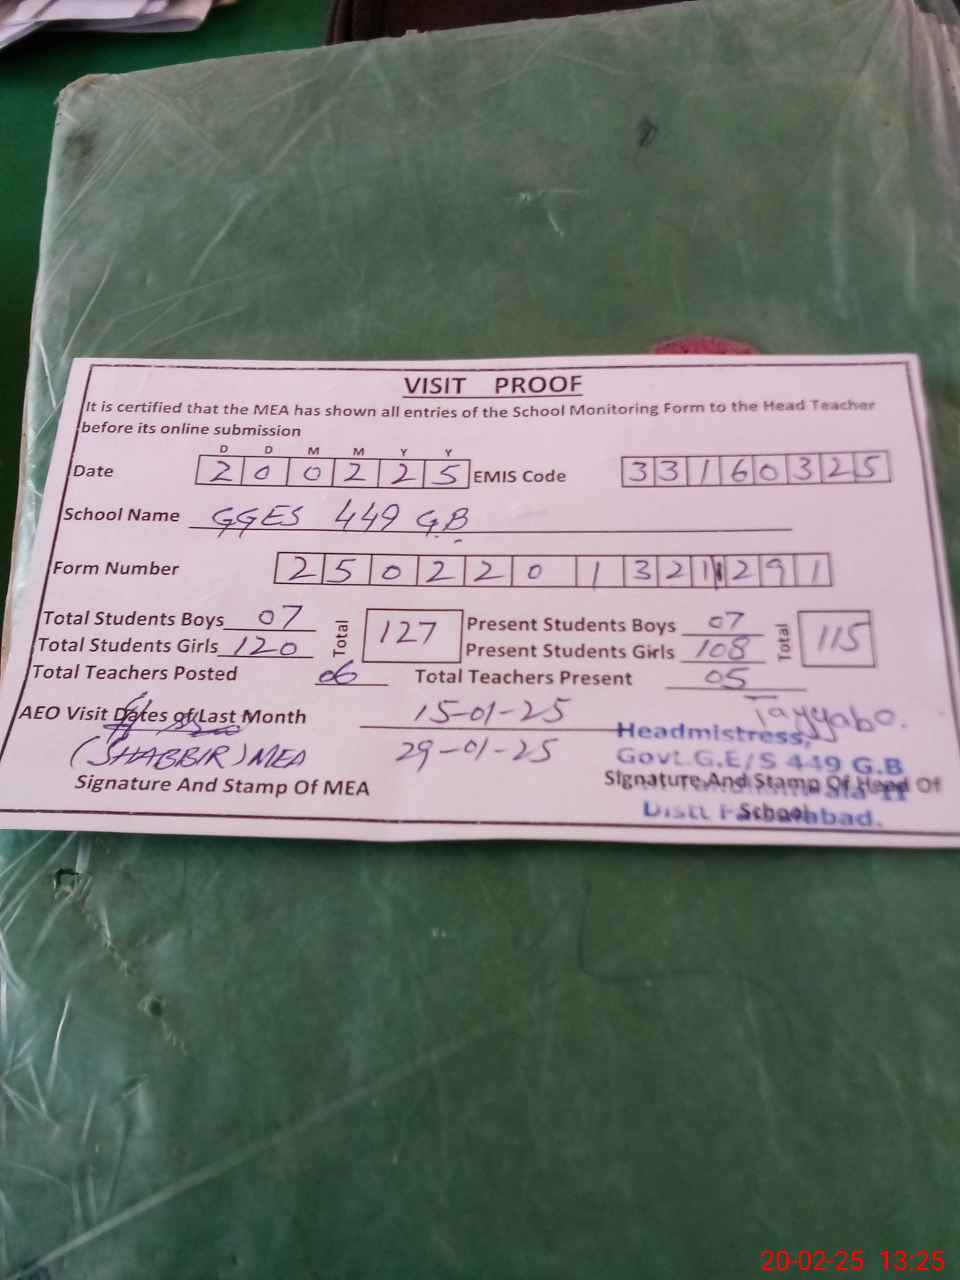 VISIT PROOF
It is certified that the MEA has shown all entries of the School Monitoring Form to the Head Teacher
before its online submission
D D M M Y Y
Date 2 0 0 2 2 5 EMIS Code 3 3 1 6 0 3 2 5
School Name GGES 449 G.B
Form Number 2 5 0 2 2 0 1 3 2 1 2 9 1
Total Students Boys 07 Total 127 Present Students Boys 07 Total 115
Total Students Girls 120 Present Students Girls 108
Total Teachers Posted 06 Total Teachers Present 05
AEO Visit Dates of Last Month 15-01-25 Tayyaba.
(SHABBIR) MEA 29-01-25 Headmistress,
Govt.G.E/S 449 G.B
Signature And Stamp Of MEA Signature And Stamp Of Head Of
School
Distt Faisalabad.
20-02-25 13:25